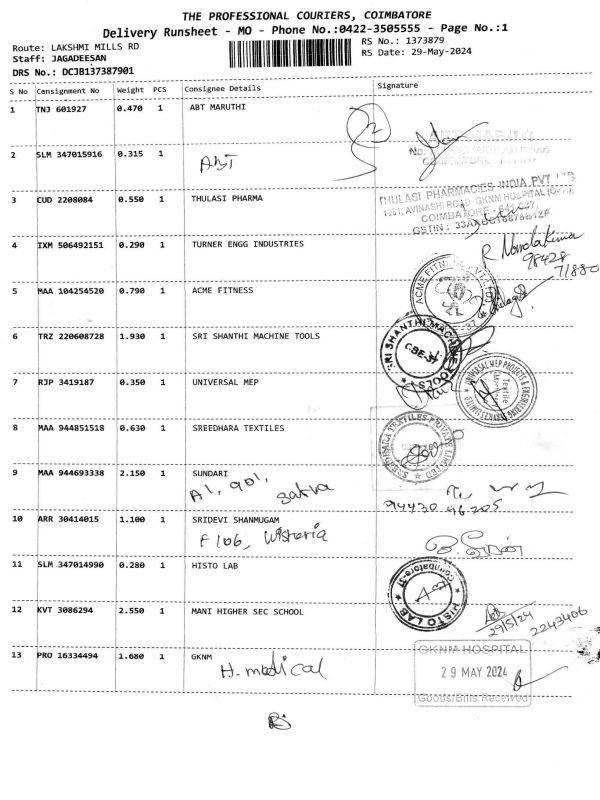 THE PROFESSIONAL COURIERS, COIMBATORE
Delivery Runsheet - MO - Phone No.:0422-3505555 - Page No.:1
Route: LAKSHMI MILLS RD
RS No.: 1373879
Staff: JAGADEESAN
RS Date: 29-May-2024
DRS No.: DCJB137387901
S No Consignment No Weight PCS Consignee Details Signature
1 TNJ 601927 0.470 1 ABT MARUTHI
2 SLM 347015916 0.315 1 ABT
COIMBATORE
3 CUD 2208084 0.550 1 THULASI PHARMA
THULASI PHARMACIES INDIA PVT LTD
1081, AVINASHI ROAD, GKNM HOSPITAL
COIMBATORE - 641 037.
GSTIN : 
4 IXM 506492151 0.290 1 TURNER ENGG INDUSTRIES
98428
71880
5 MAA 104254520 0.790 1 ACME FITNESS
ACME FITNESS
6 TRZ 220608728 1.930 1 SRI SHANTHI MACHINE TOOLS
SRI SHANTHI MACHINE TOOLS
CBE-37
7 RJP 3419187 0.350 1 UNIVERSAL MEP
UNIVERSAL MEP PROJECTS & ENGINEERING SERVICES LIMITED
Textile
8 MAA 944851518 0.630 1 SREEDHARA TEXTILES
SREEDHARA TEXTILES PRIVATE LIMITED
9 MAA 944693338 2.150 1 SUNDARI
A1, 901, Satva
94430 46205
10 ARR 30414015 1.100 1 SRIDEVI SHANMUGAM
F 106, Wisteria
11 SLM 347014990 0.280 1 HISTO LAB
HISTO LAB
Coimbatore-37
12 KVT 3086294 2.550 1 MANI HIGHER SEC SCHOOL
29/5/24
2243406
13 PRO 16334494 1.680 1 GKNM
H. medical
GKNM HOSPITAL
29 MAY 2024
Goods/Bills Received